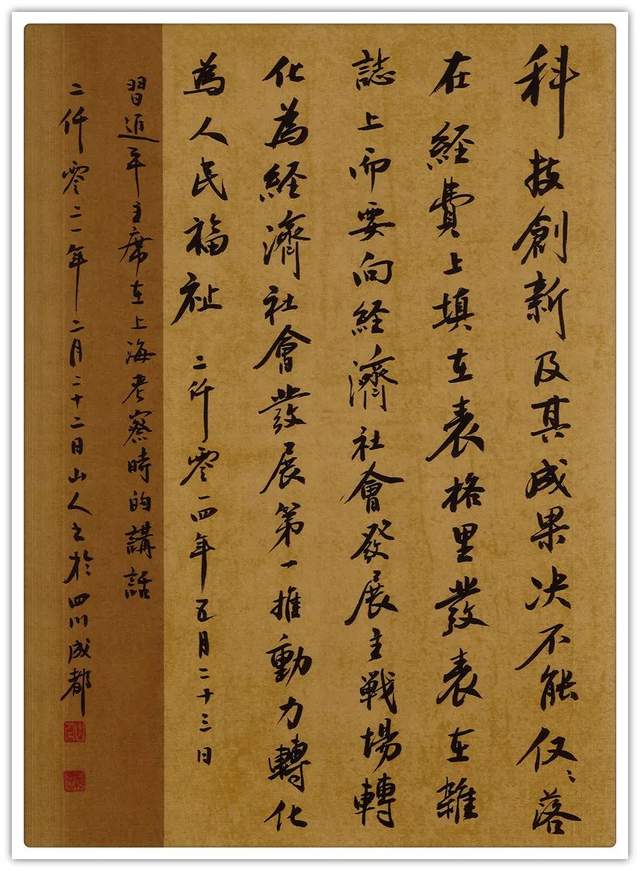 科技創新及其成果决不能仅〻落
在経費上填在表格里發表在雜
誌上而要向経濟社會發展主戰場轉
化為経濟社會發展第一推動力轉化
為人民福祉 二仟零一四年五月二十三日
習近平主席在上海考察時的講話
二仟零二一年二月二十二日山人书於四川成都